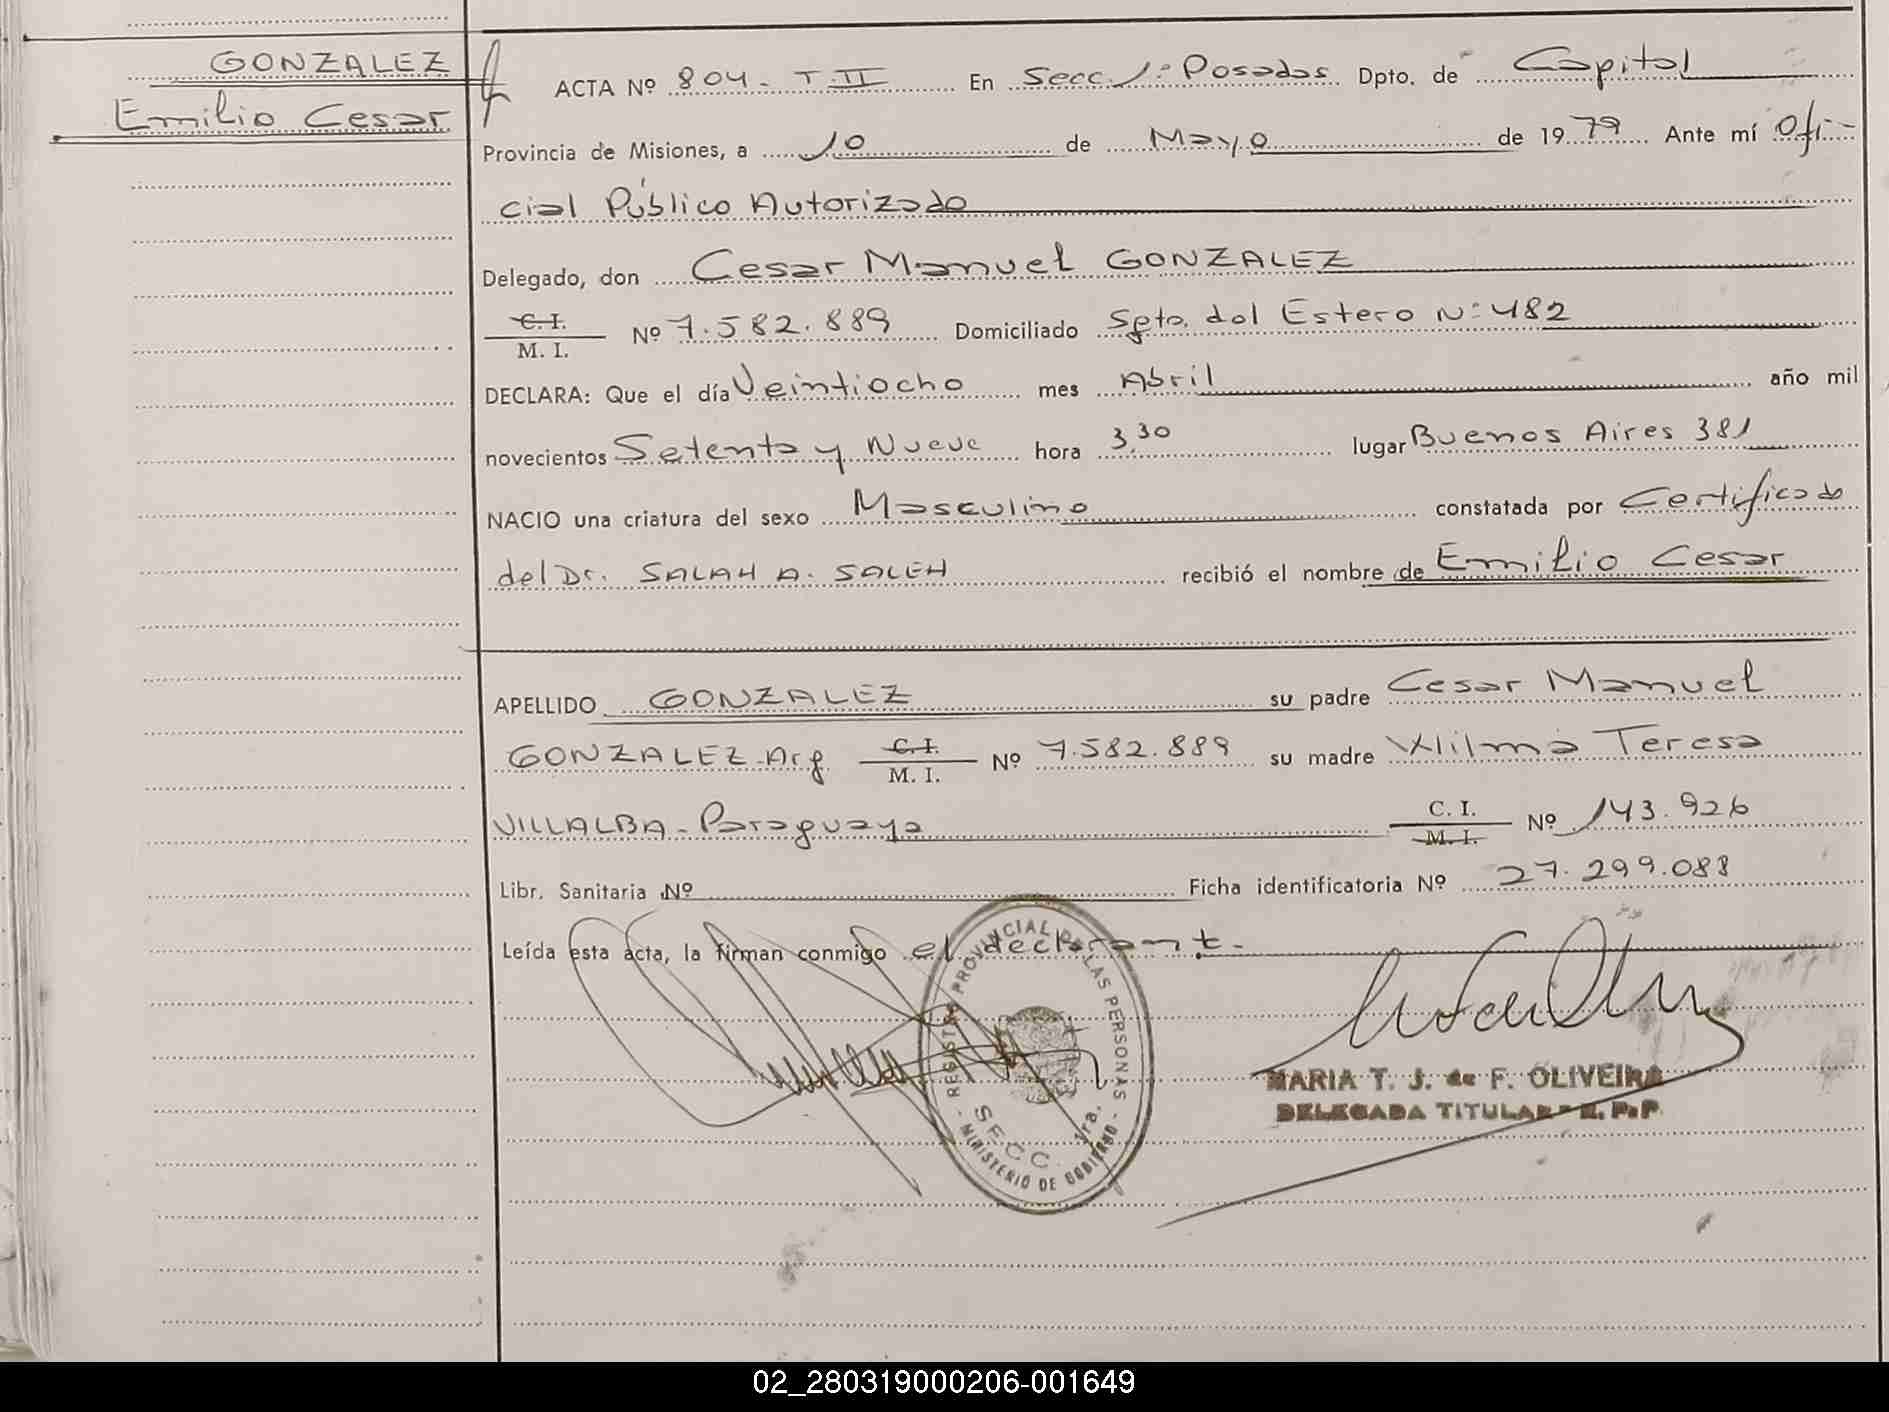 GONZALEZ
Emilio Cesar
ACTA Nº 804 - T. II En Secc. 1º Posadas Dpto. de Capital
Provincia de Misiones, a 10 de Mayo de 1979 Ante mí Ofi-
cial Público Autorizado
Delegado, don Cesar Manuel GONZALEZ
C. I.
M. I. Nº 7.582.889 Domiciliado Sgto. del Estero Nº 482
DECLARA: Que el día Veintiocho mes Abril año mil
novecientos Setenta y Nueve hora 3,30 lugar Buenos Aires 381
NACIO una criatura del sexo Masculino constatada por Certificado
del Dr. SALAH A. SALEH recibió el nombre de Emilio Cesar
APELLIDO GONZALEZ su padre Cesar Manuel
GONZALEZ - Arg C. I.
M. I. Nº 7.582.889 su madre Wilma Teresa
VILLALBA - Paraguaya C. I.
M. I. Nº 143.926
Libr. Sanitaria Nº Ficha identificatoria Nº 27.299.088
Leída esta acta, la firman conmigo el declarant.-
REGISTRO PROVINCIAL DE LAS PERSONAS - MINISTERIO DE GOBIERNO -
SECC. 1ra.
MARIA T. J. de F. OLIVEIRA
DELEGADA TITULAR - R. P. P.
02_280319000206-001649